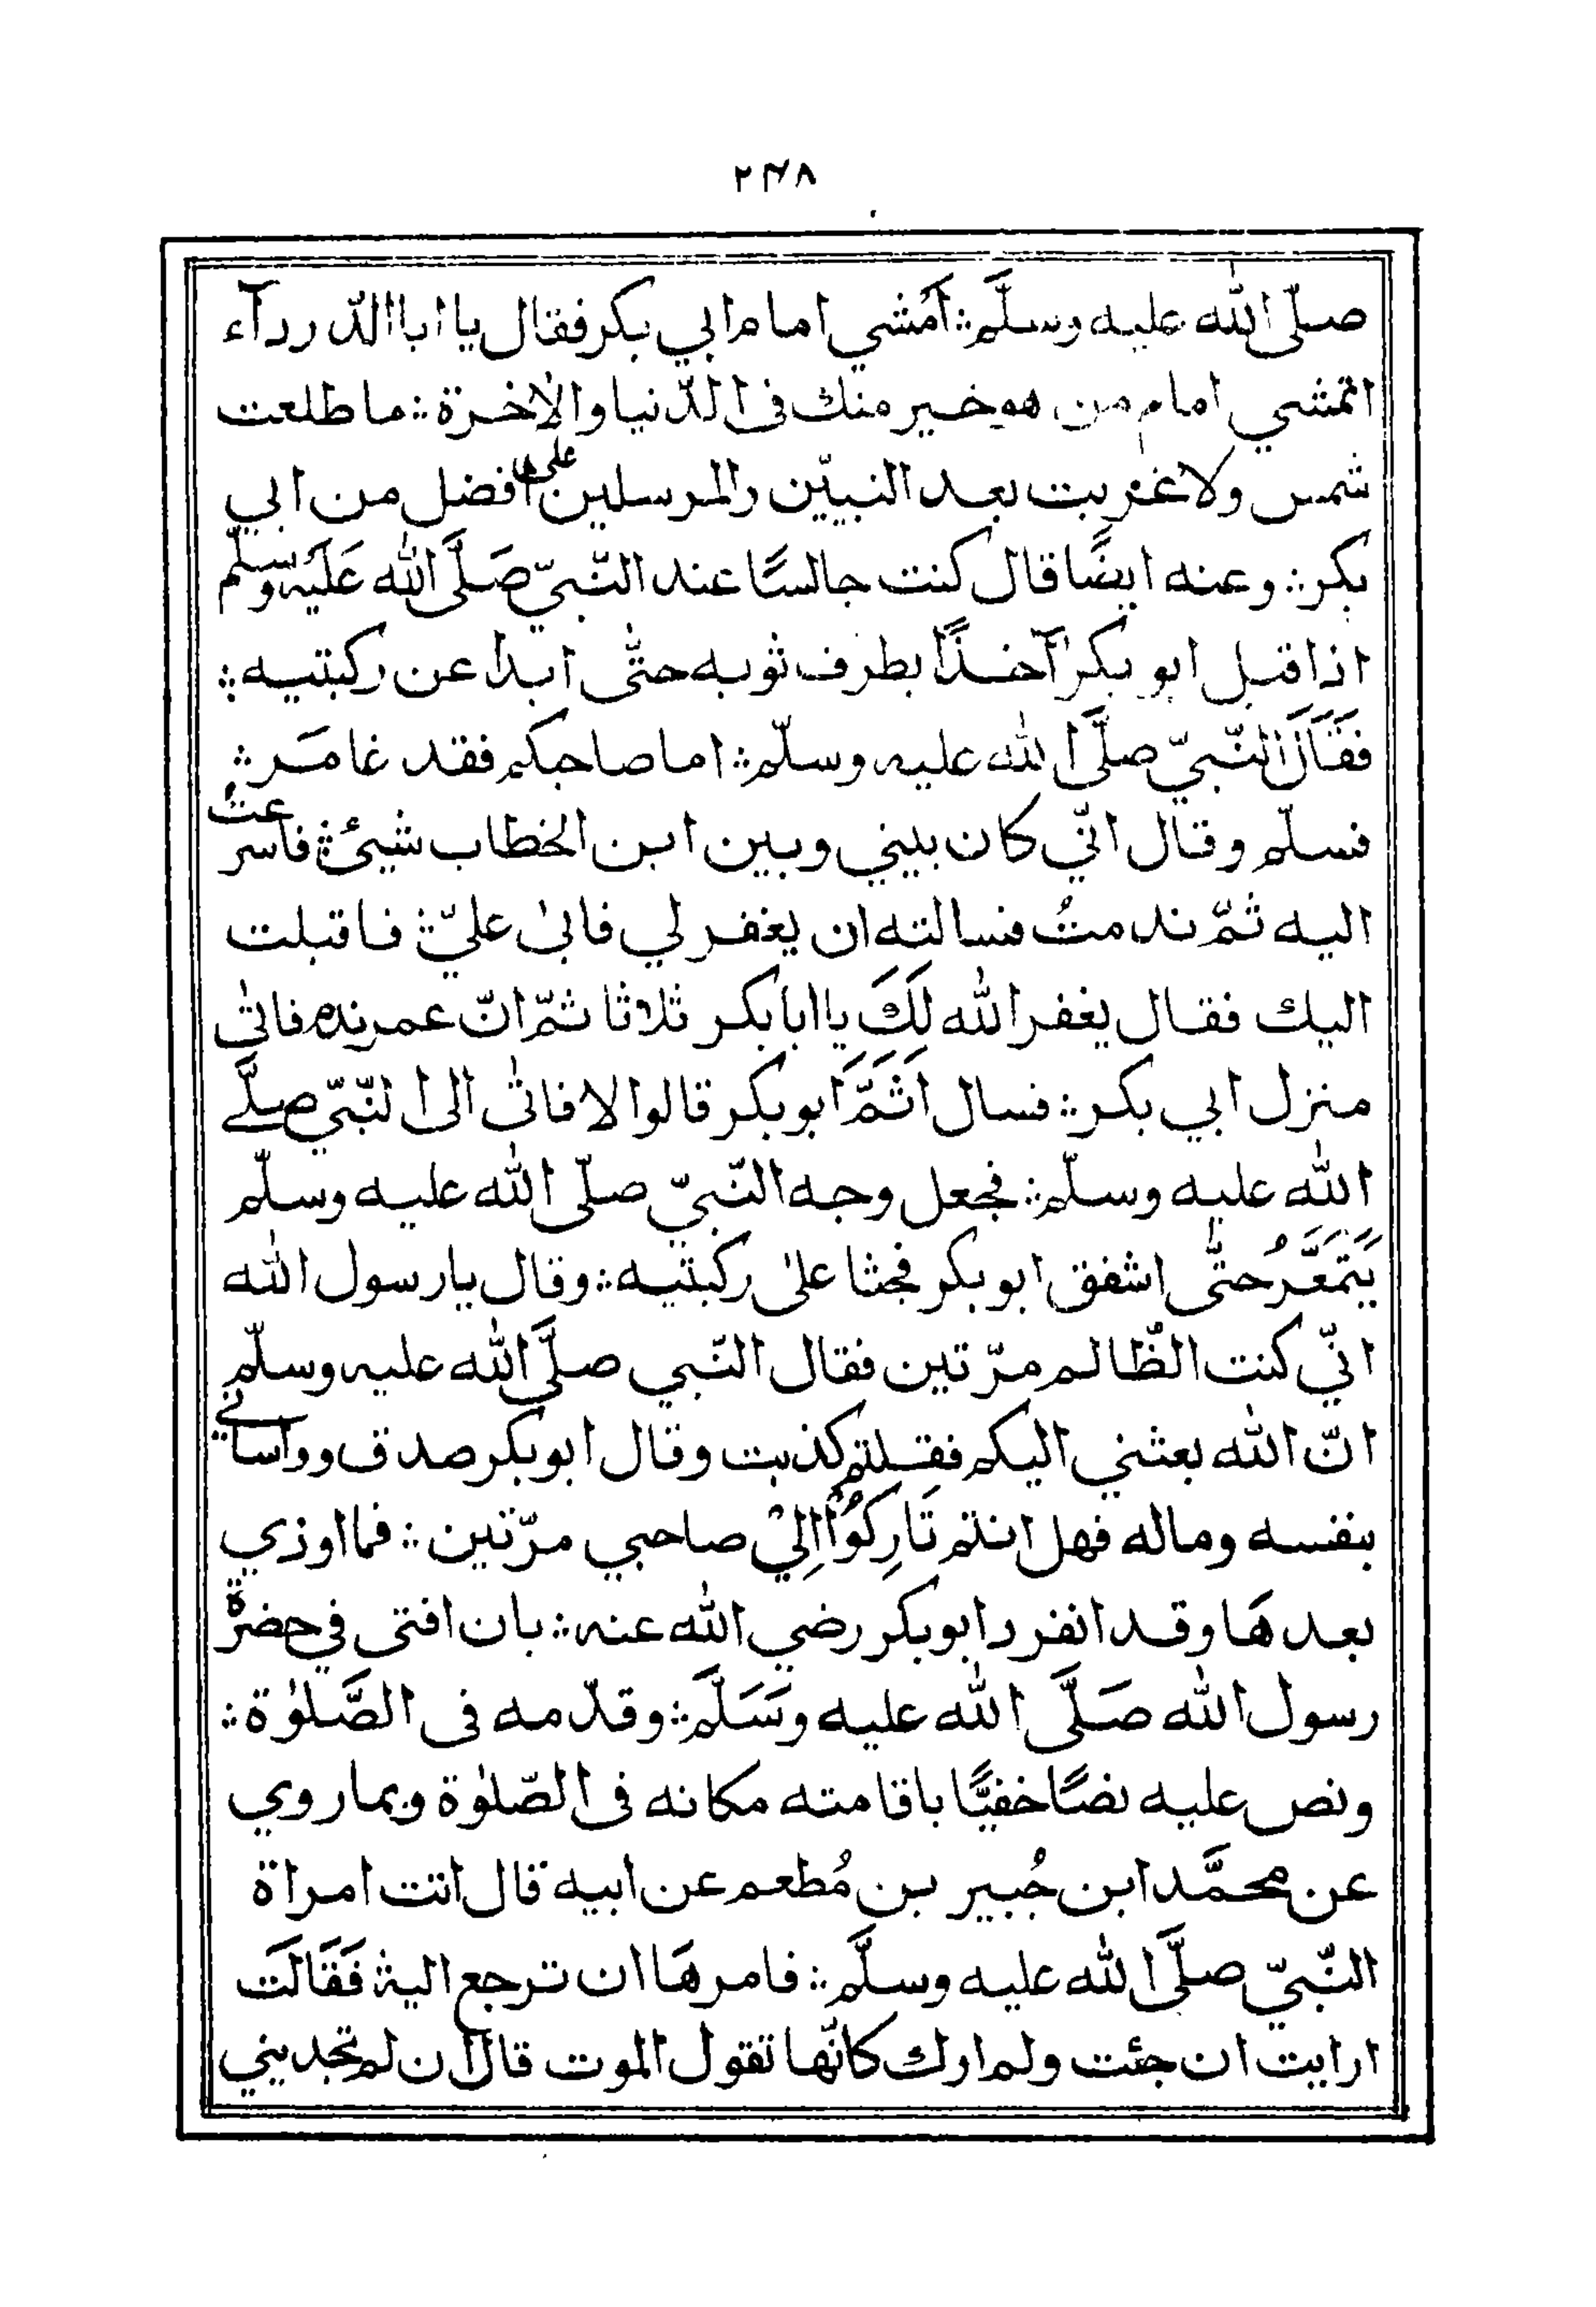 ٢٤٨
صلّى الله عليه وسلَّم ∴ اَمْشي امام ابي بكر فقال يا ابا الدّردآء
اتمشي امام من هو خير منك فى الدّنيا والاٰخرة ∴ ما طلعت
شمس ولا غربت بعد النبيّين والمرسلين على افضل من ابي
بكر ∴ وعنه ايضًا قال كنت جالسًا عند النّبيّ صَلَّى الله عَلَيْه وسلّم
اذ اقبل ابو بكر آخذًا بطرف ثوبه حتّٰى ابدا عن ركبتيه ∴
فَقَالَ النّبيّ صلَّى الله عليه وسلّم ∴ اما صاحبكم فقد غامَر ∴
فسلّم وقال انّي كان بيني وبين ابن الخطاب شيئ ∴ فاسرعت
اليه ثمّ ندمتُ فسالته ان يغفر لي فابىٰ عليّ ∴ فاقبلت
اليك فقال يغفر الله لَكَ يا ابا بكر ثلاثا ثمّ انّ عمر ندم فاتٰى
منزل ابي بكر ∴ فسال اَثَمَّ اَبو بكر قالوا لا فاتٰى الى النّبيّ صلَّے
الله عليه وسلّم ∴ فجعل وجه النّبيّ صلّى الله عليه وسلّم
يَتَمَعَّرُ حتّٰى اشفق ابو بكر فجثا علىٰ ركبتيه ∴ وقال يا رسول الله
انّي كنت الظّالم مرّتين فقال النّبي صلَّى الله عليه وسلّم
انّ الله بعثني اليكم فقلتم كذبت وقال ابو بكر صدق وواسانے
بنفسه وماله فهل انتم تَارِكُوْا اِلِيْ صاحبي مرّتين ∴ فما اوذي
بعدهَا وقد انفرد ابو بكر رضي الله عنه ∴ بان افتى في حضرة
رسول الله صَلَّى الله عليه وَسَلَّم ∴ وقدّمه فى الصَّلوٰة ∴
ونص عليه نصًّا خفيًّا باقامته مكانه فى الصّلوٰة وبما روي
عن محمَّد ابن جُبير بن مُطعم عن ابيه قال اتت امراة
النّبيّ صلَّى الله عليه وسلَّم ∴ فامرهَا ان ترجع اليه ∴ فَقَالَت
ارايت ان جئت ولم ارك كانّها تقول الموت قال ان لم تجديني